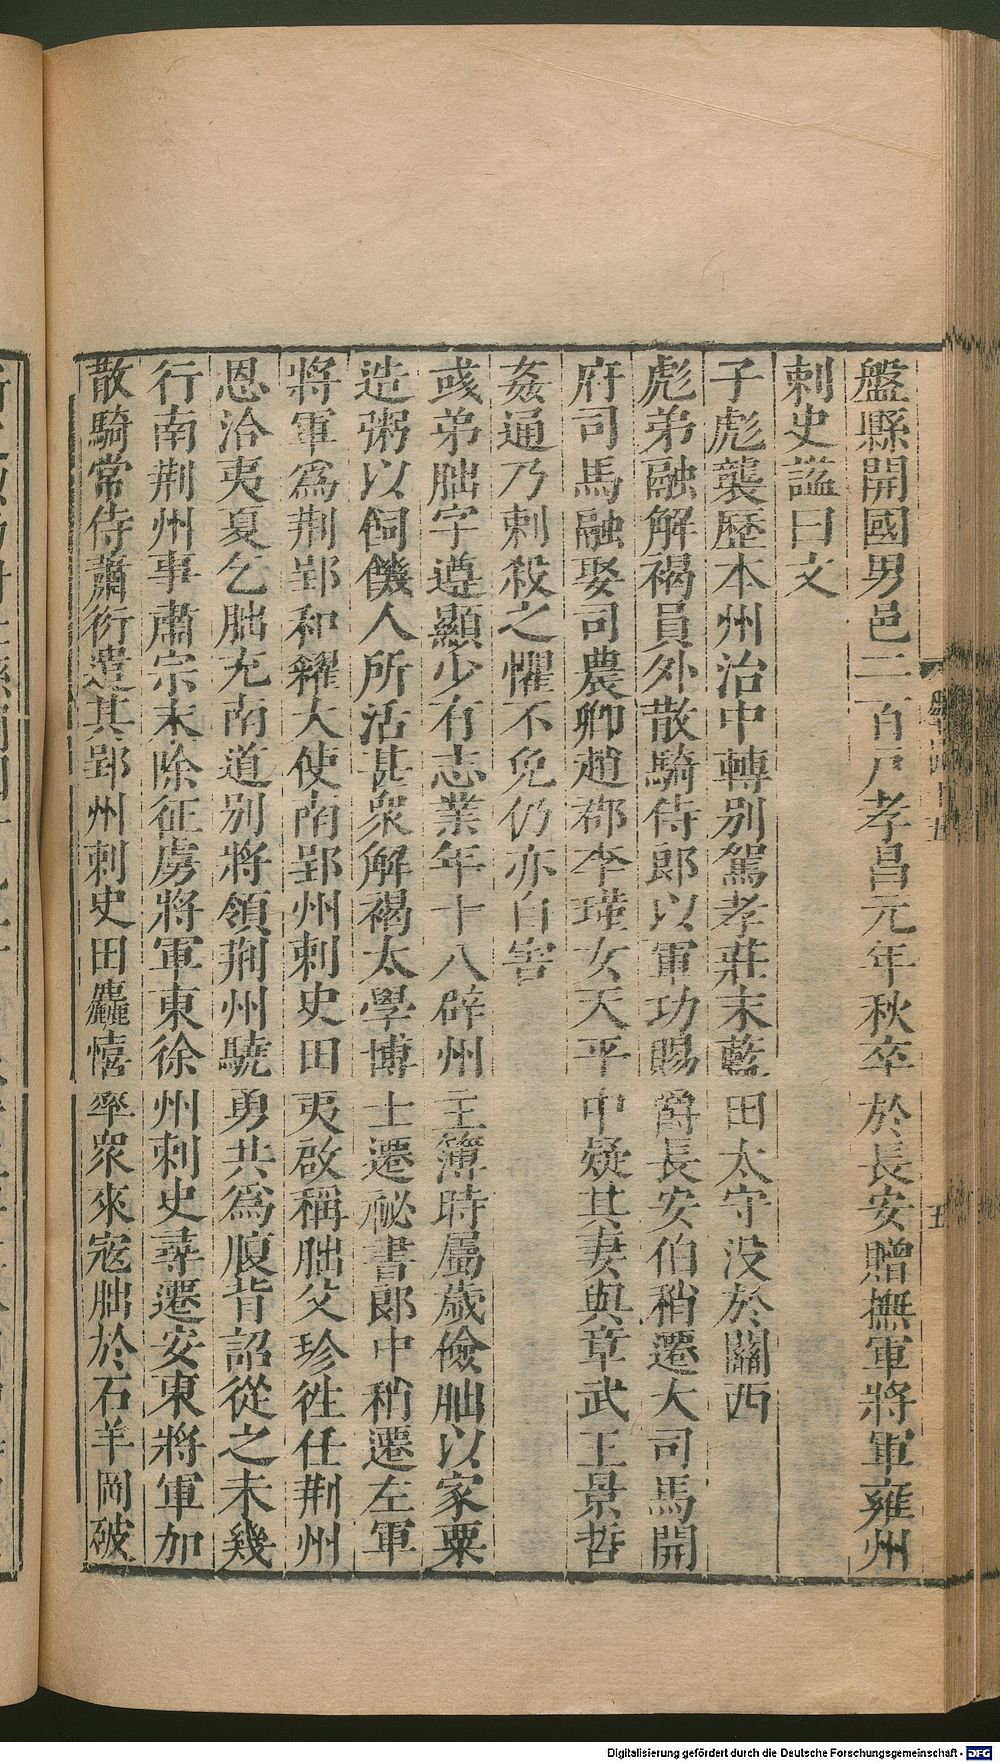 盤縣開國男邑二百戸孝昌元年秋卒於長安贈撫軍將軍雍州
刺史諡曰文
子彪襲歷本州治中轉别駕孝莊末藍田太守没於關西
彪弟融解褐員外散騎侍郎以軍功賜爵長安伯稍遷大司馬開
府司馬融娶司農卿趙郡李瑾女天平中疑其妻與章武王景哲
姦通乃刺殺之懼不免仍亦自害
彧弟朏字遵顯少有志業年十八辟州主簿時屬歲儉朏以家粟
造粥以飼饑人所活甚衆解褐太學博士遷祕書郎中稍遷左軍
將軍爲荆郢和糴大使南郢州刺史田夷啟稱朏父珍徃任荆州
恩洽夷夏乞朏充南道别將領荆州驍勇共爲腹背詔從之未幾
行南荆州事肅宗末除征虜將軍東徐州刺史尋遷安東將軍加
散騎常侍蕭衍遣其郢州刺史田麤憘率衆來寇朏於石羊岡破
五
Digitalisierung gefördert durch die Deutsche Forschungsgemeinschaft - DFG